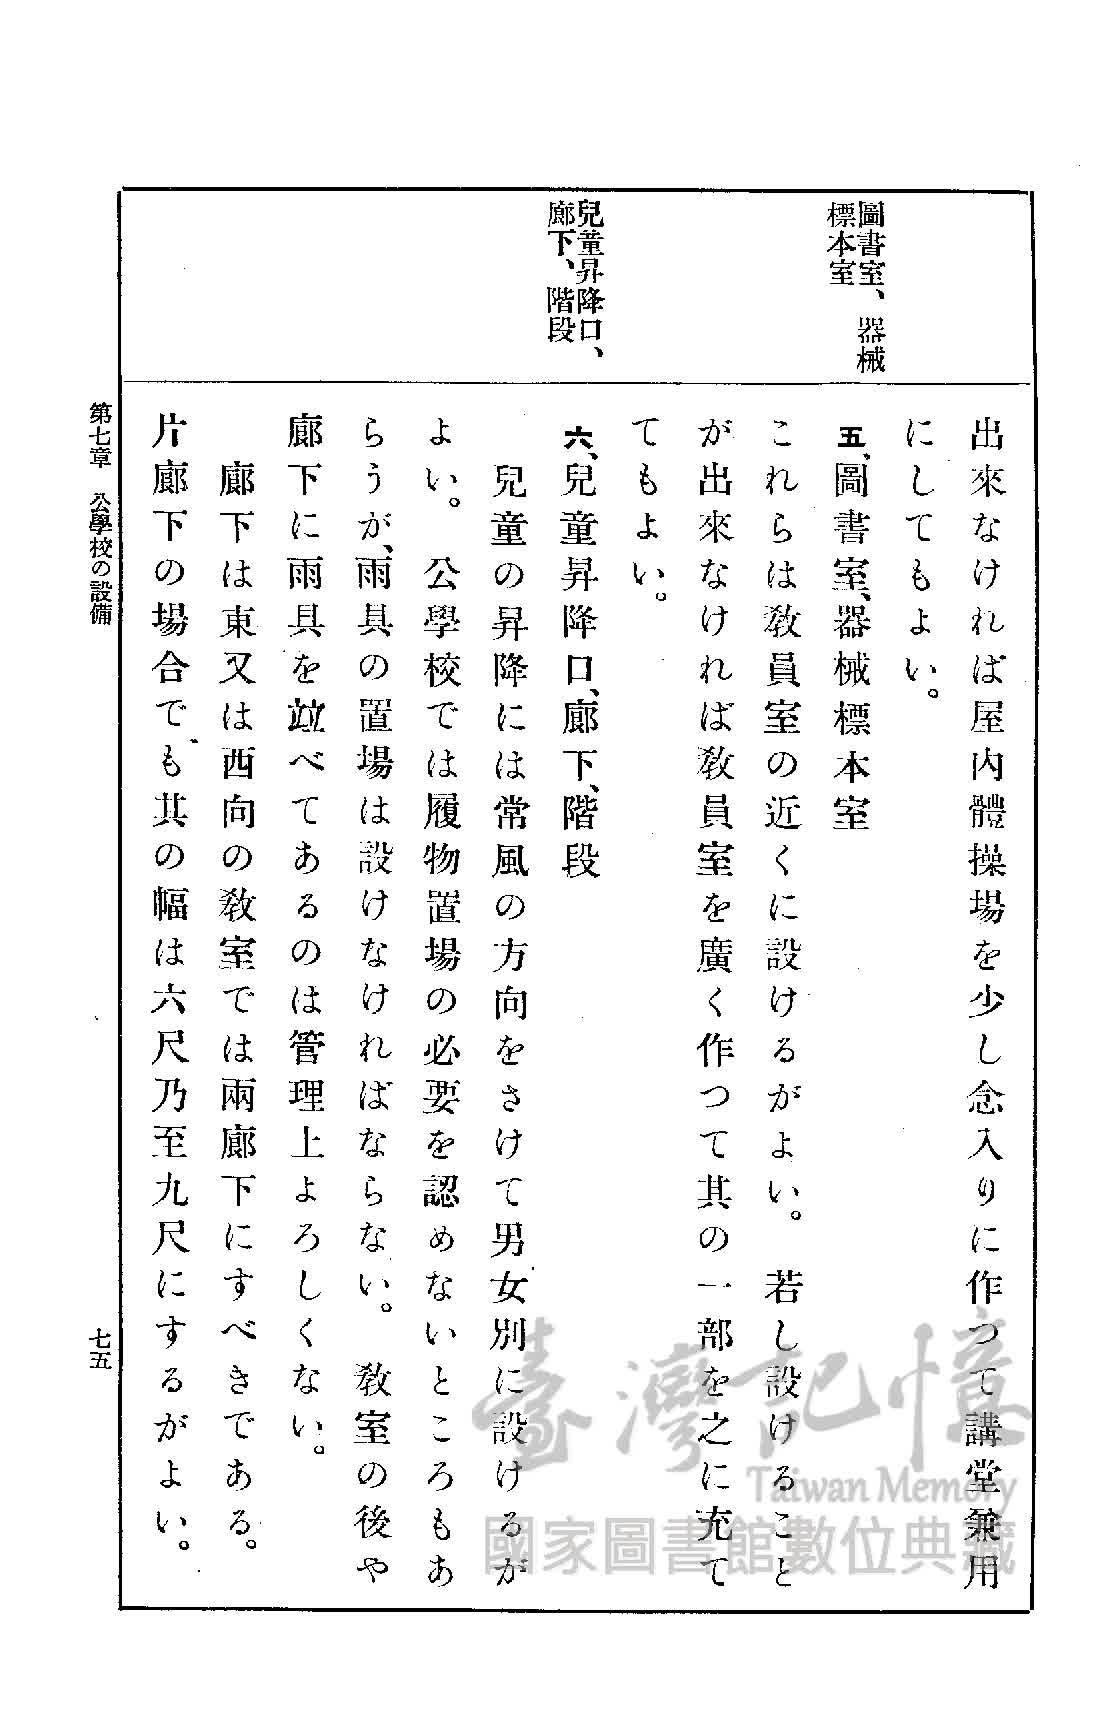 圖書室、器械
標本室
兒童昇降口、
廊下、階段
出來なければ屋内體操場を少し念入りに作つて講堂兼用
にしてもよい。
五、圖書室、器械標本室
これらは教員室の近くに設けるがよい。若し設けること
が出來なければ教員室を廣く作つて其の一部を之に充て
てもよい。
六、兒童昇降口、廊下、階段
兒童の昇降には常風の方向をさけて男女別に設けるが
よい。公學校では履物置場の必要を認めないところもあ
らうが、雨具の置場は設けなければならない。教室の後や
廊下に雨具を竝べてあるのは管理上よろしくない。
廊下は東又は西向の教室では兩廊下にすべきである。
片廊下の場合でも其の幅は六尺乃至九尺にするがよい。
第七章 公學校の設備
七五
臺灣記憶
Taiwan Memory
國家圖書館數位典藏